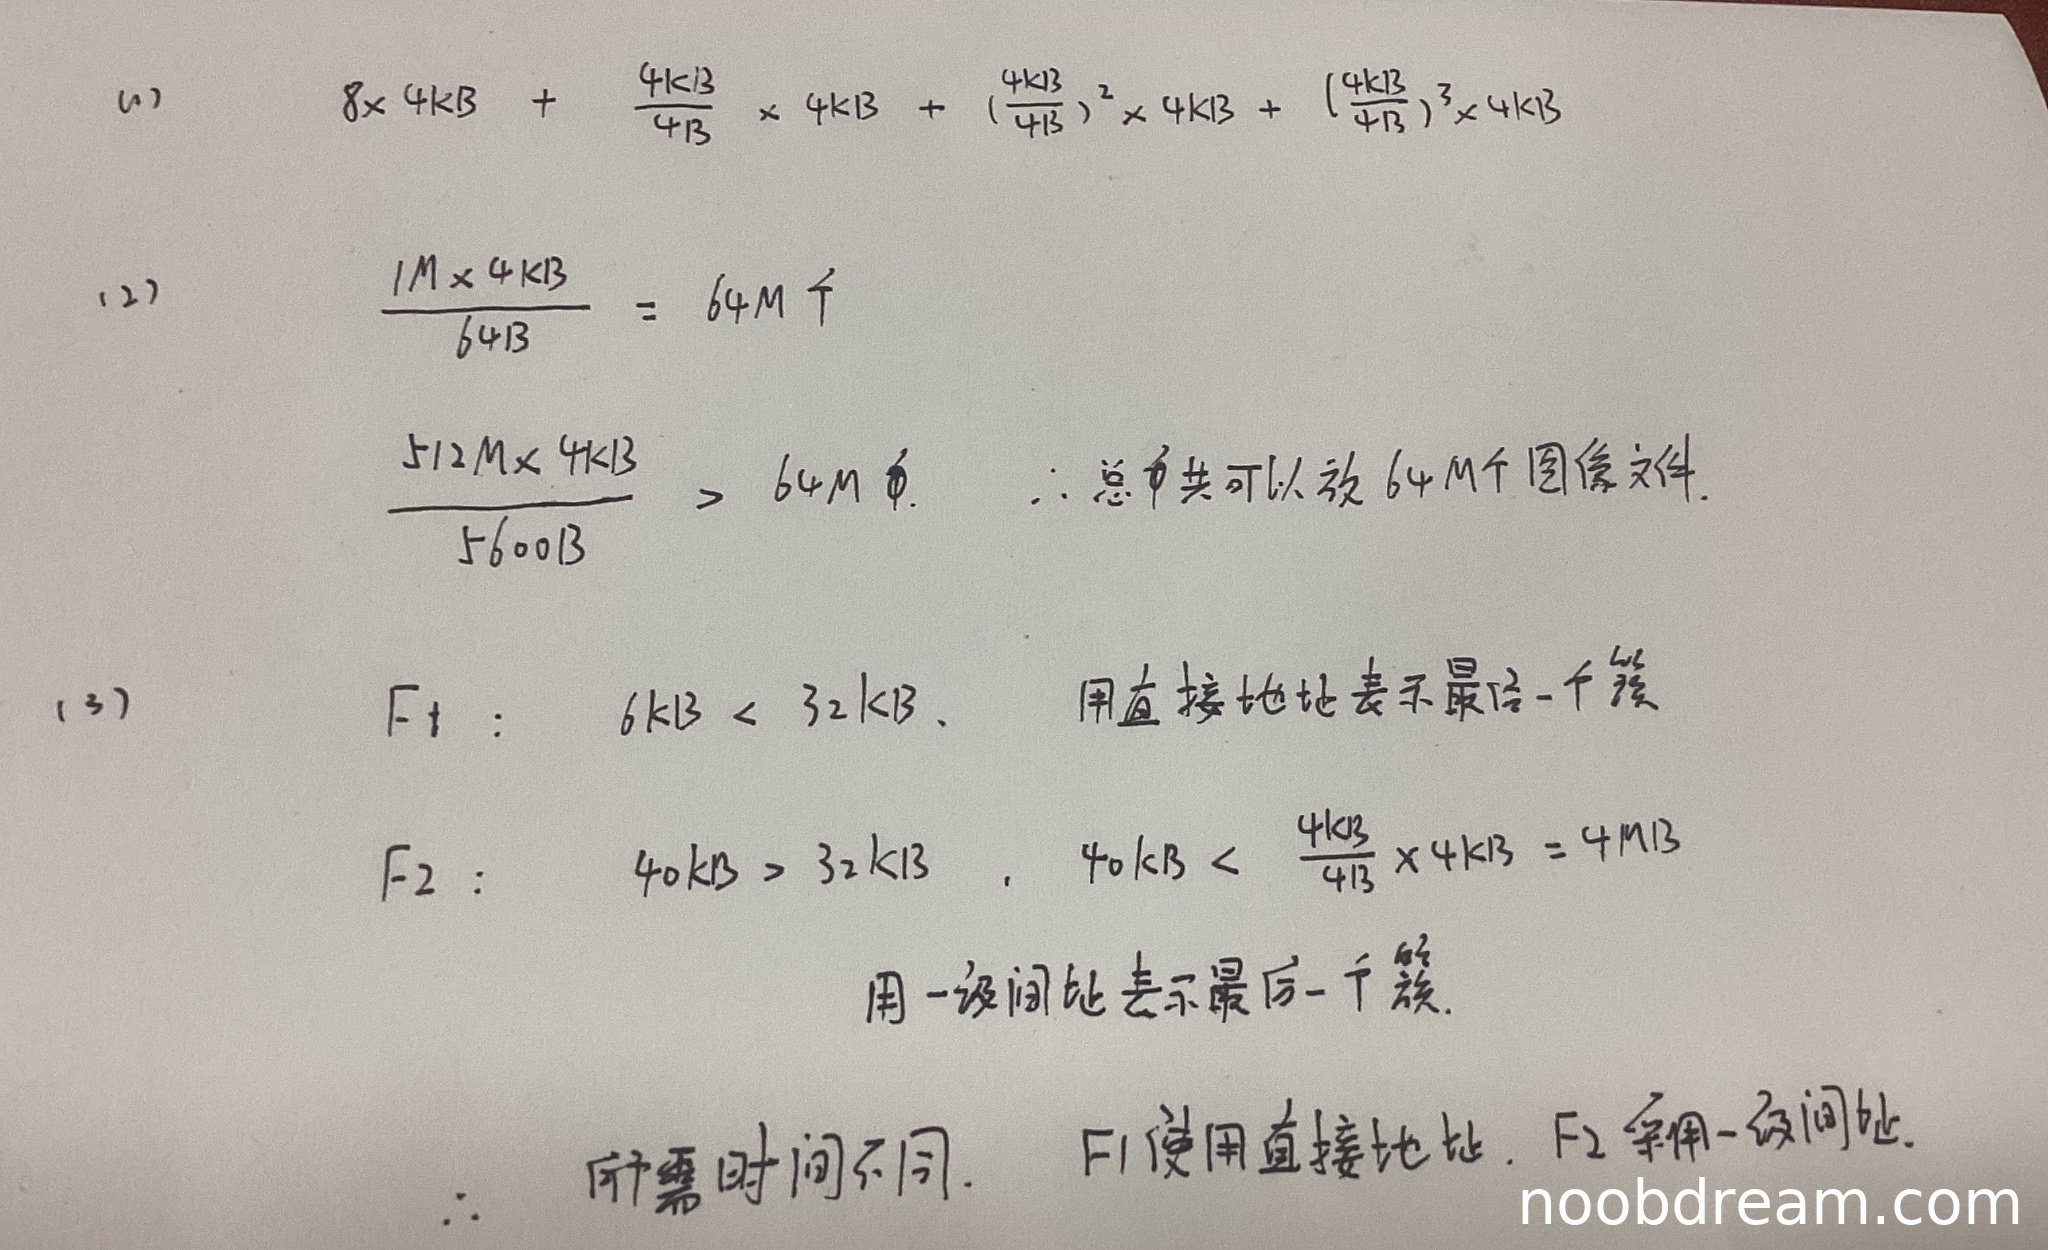 (1) 8×4KB + 4KB/4B × 4KB + (4KB/4B)² × 4KB + (4KB/4B)³ × 4KB
(2) 1M×4KB/64B = 64M个
512M×4KB/5600B > 64M. ∴ 总共可以放64M个图像文件.
(3) F1: 6KB < 32KB. 用直接地址表示最后一个簇
F2: 40KB > 32KB, 40KB < 4KB/4B × 4KB = 4MB
用一级间址表示最后一个簇.
∴ 所需时间不同. F1使用直接地址. F2采用一级间址.
noobdream.com